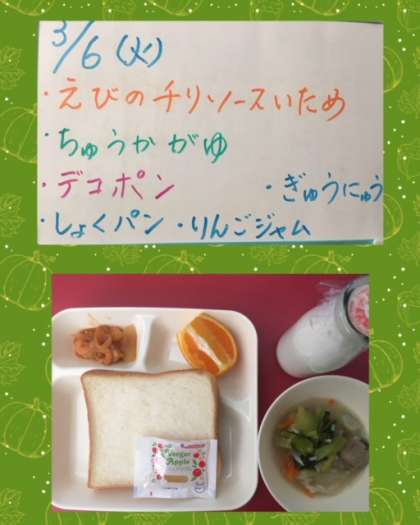 3/6(火)
・えびのチリソースいため
・ちゅうかがゆ
・デコポン ・ぎゅうにゅう
・しょくパン ・りんごジャム
Apple